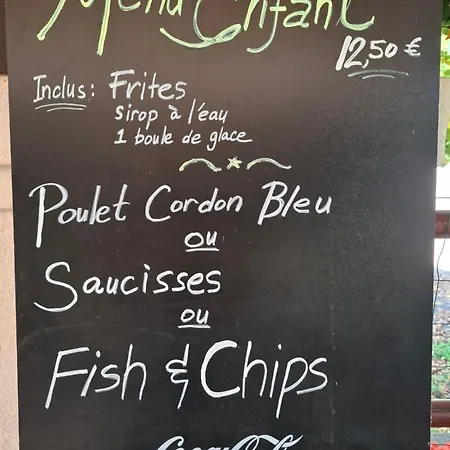 Menu Enfant
12,50 €
Inclus: Frites
sirop à l'eau
1 boule de glace
Poulet Cordon Bleu
ou
Saucisses
ou
Fish & Chips
Coca-Cola